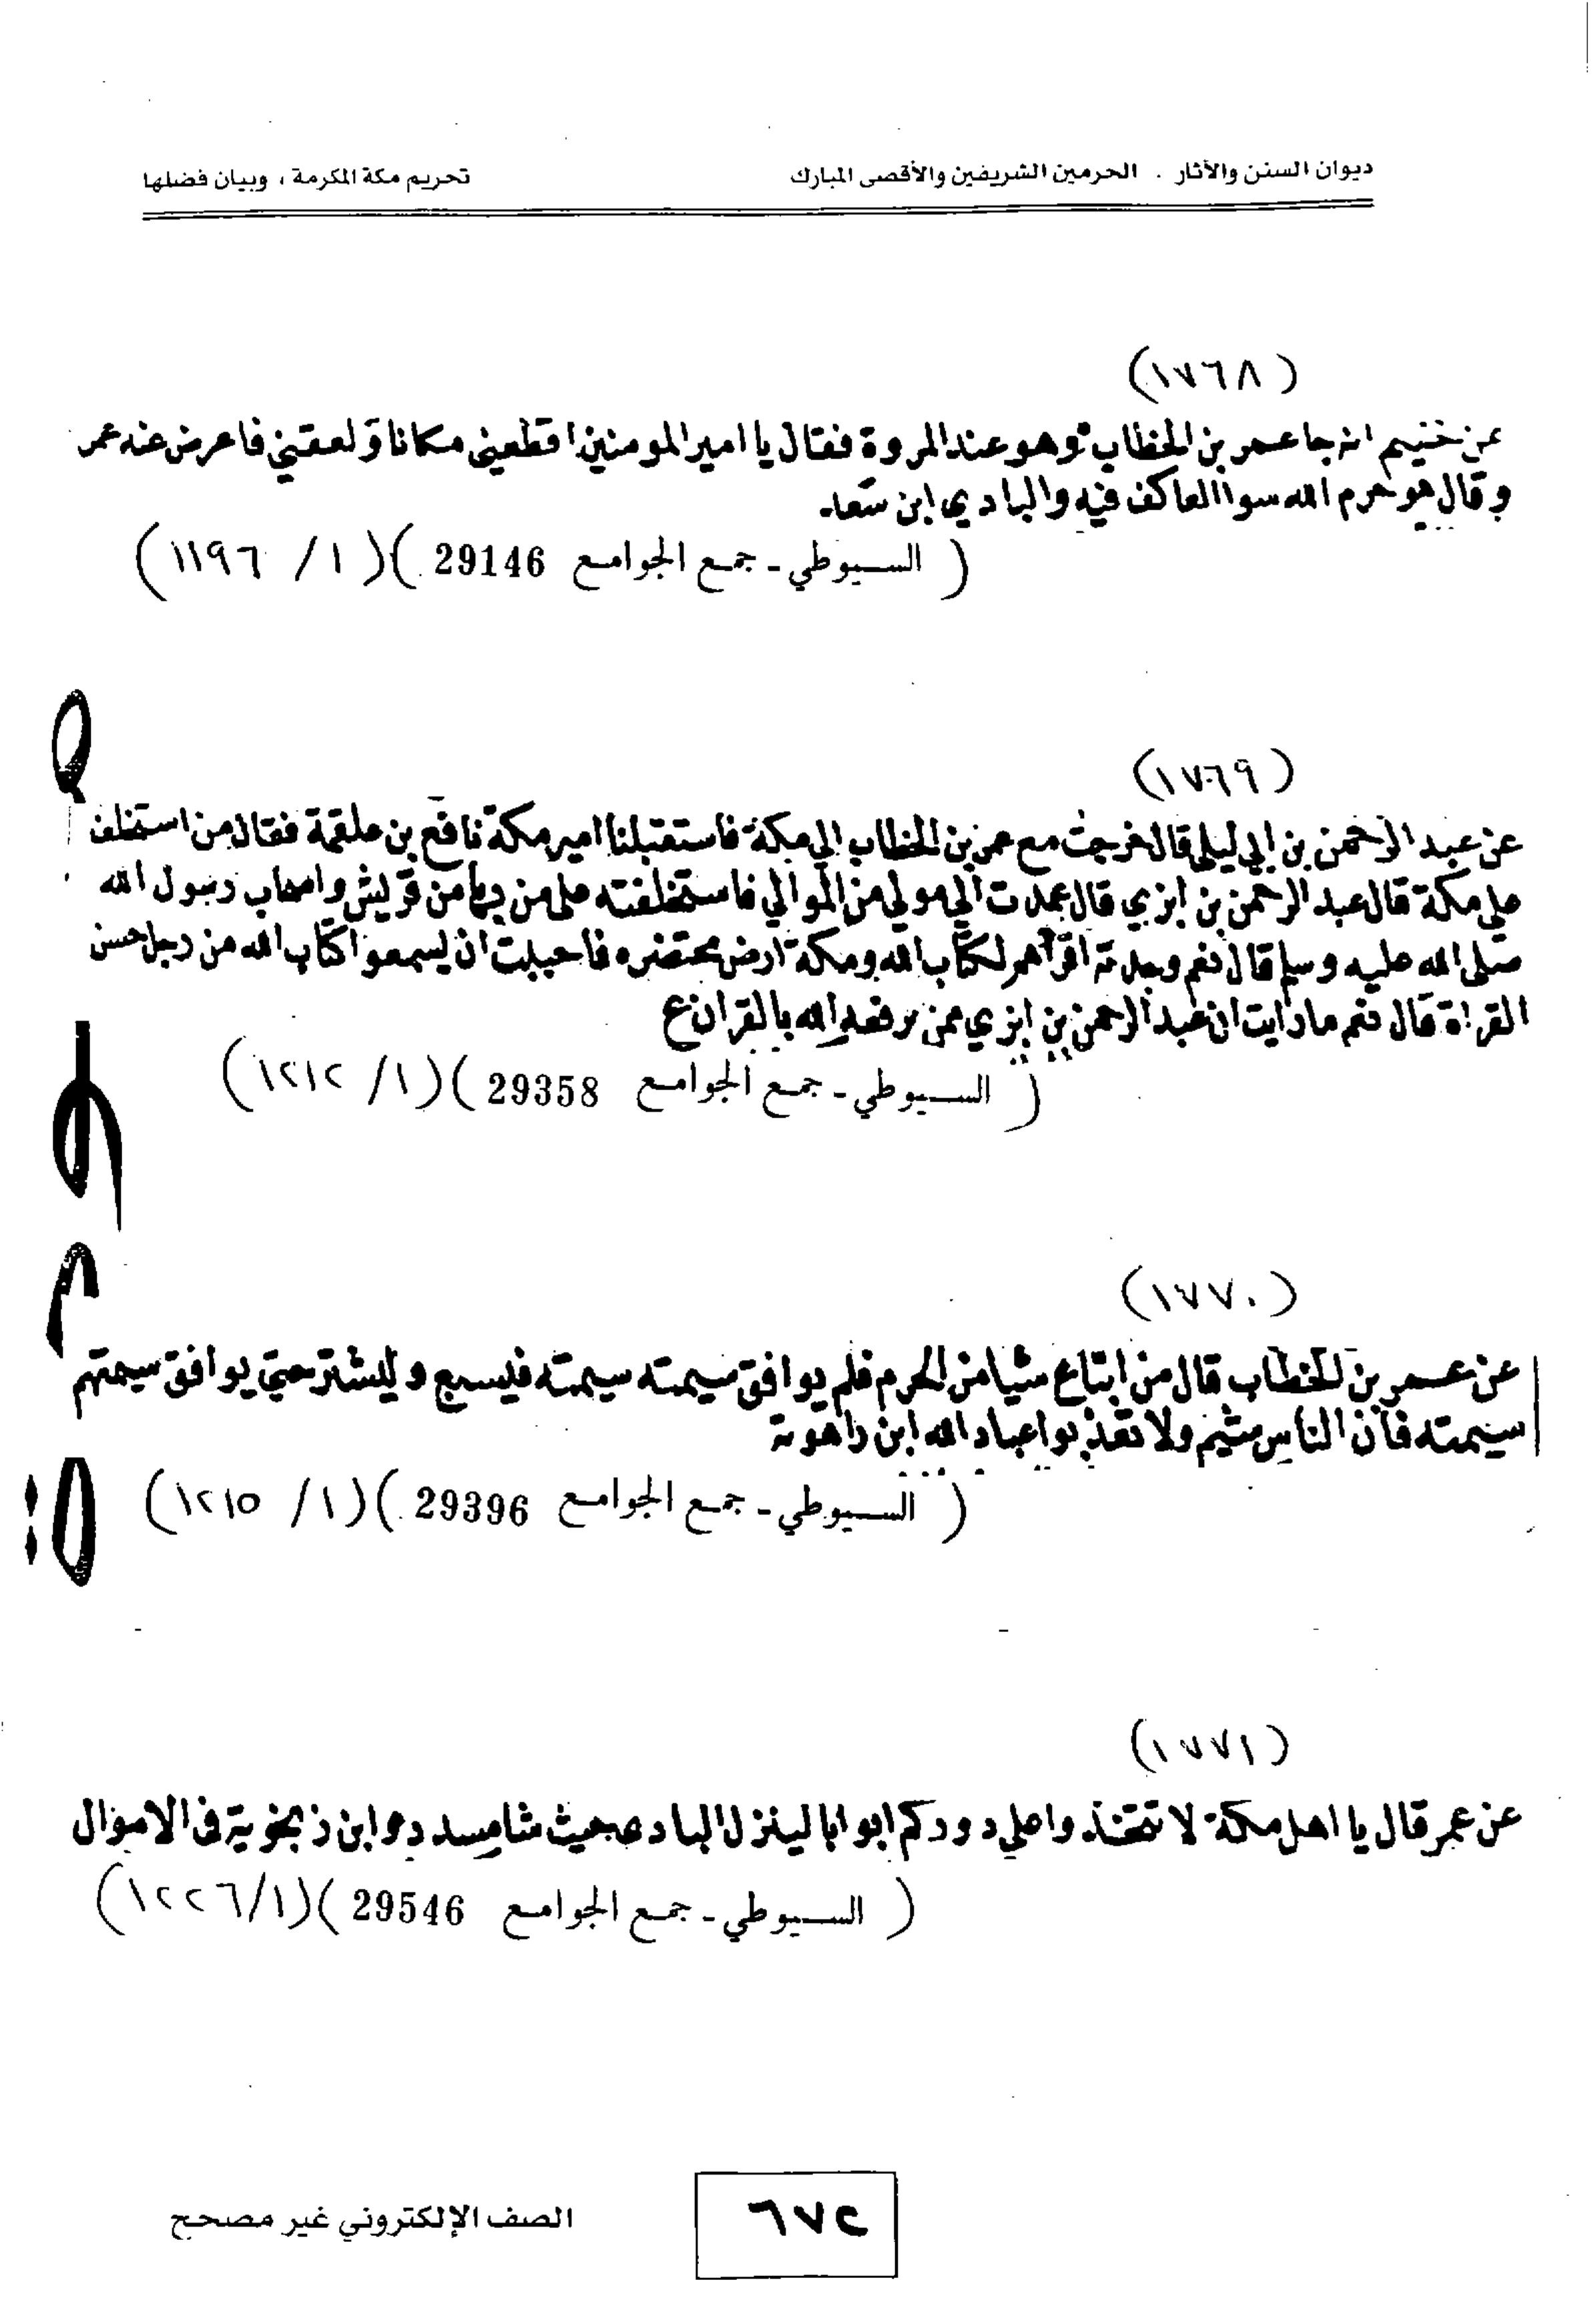 ديوان السنن والآثار . الحرمين الشريفين والأقصى المبارك
تحريم مكة المكرمة ، وبيان فضلها
(١٧٦٨)
عن خثيم انه جا عمر بن الخطاب وهو عند المروة فقال يا امير المومنين اقطعني مكانا لي ولعقبي فاعرض عنه عمر
وقال هو حرم الله سوا العاكف فيه والبادي ابن سعد
( السيوطي - جمع الجوامع 29146 )(١ / ١١٩٦)
(١٧٦٩)
عن عبد الرحمن بن ابي ليلى قال خرجت مع عمر بن الخطاب الي مكة فاستقبلنا امير مكة نافع بن علقمة فقال من استخلف
على مكة قال عبد الرحمن بن ابزي قال عمدت الي مولي من الموالي فاستخلفته على من بها من قريش واصحاب رسول الله
صلى الله عليه وسلم قال نعم وجدته اقرأهم لكتاب الله ومكة ارض محتضره فاحببت ان يسمعوا كتاب الله من رجل حسن
القراة قال نعم ما رايت ان عبد الرحمن بن ابزي ممن يرفعه الله بالقران ع
( السيوطي - جمع الجوامع 29358 )(١ / ١٢١٢)
(١٧٧٠)
عن عمر بن الخطاب قال من ابتاع شيا من الحرم فلم يوافق سيمته سيمته فليبع وليشتر حتي يوافق سيمتهم
سيمته فان الناس شيم ولا تعذبوا عباد الله ابن راهوية
( السيوطي - جمع الجوامع 29396 )(١ / ١٢١٥)
(١٧٧١)
عن عمر قال يا اهل مكة لا تتخذوا علي دوركم ابوابا لينزل البادي حيث شا مسدد وابن زنجوية في الاموال
( السيوطي - جمع الجوامع 29546 )(١/١٢٢٦)
٦٧٢
الصف الإلكتروني غير مصحح